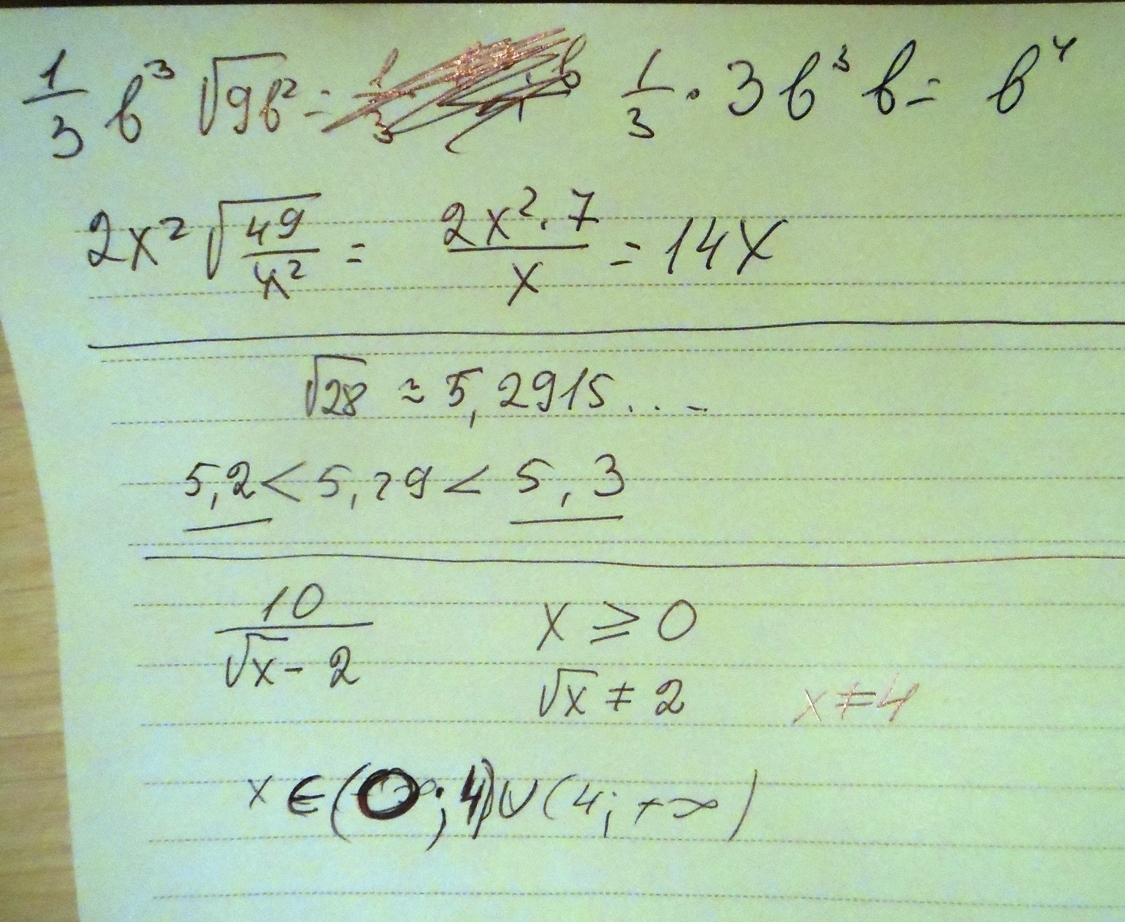 1/3 b³ √9b² = 1/3 · 3b³ b = b⁴
2x² √(49/x²) = (2x² · 7)/x = 14x
√28 ≈ 5,2915...
5,2 < 5,29 < 5,3
10/(√x - 2) x ⩾ 0
√x ≠ 2 x ≠ 4
x ∈ (0; 4) ∪ (4; +∞)